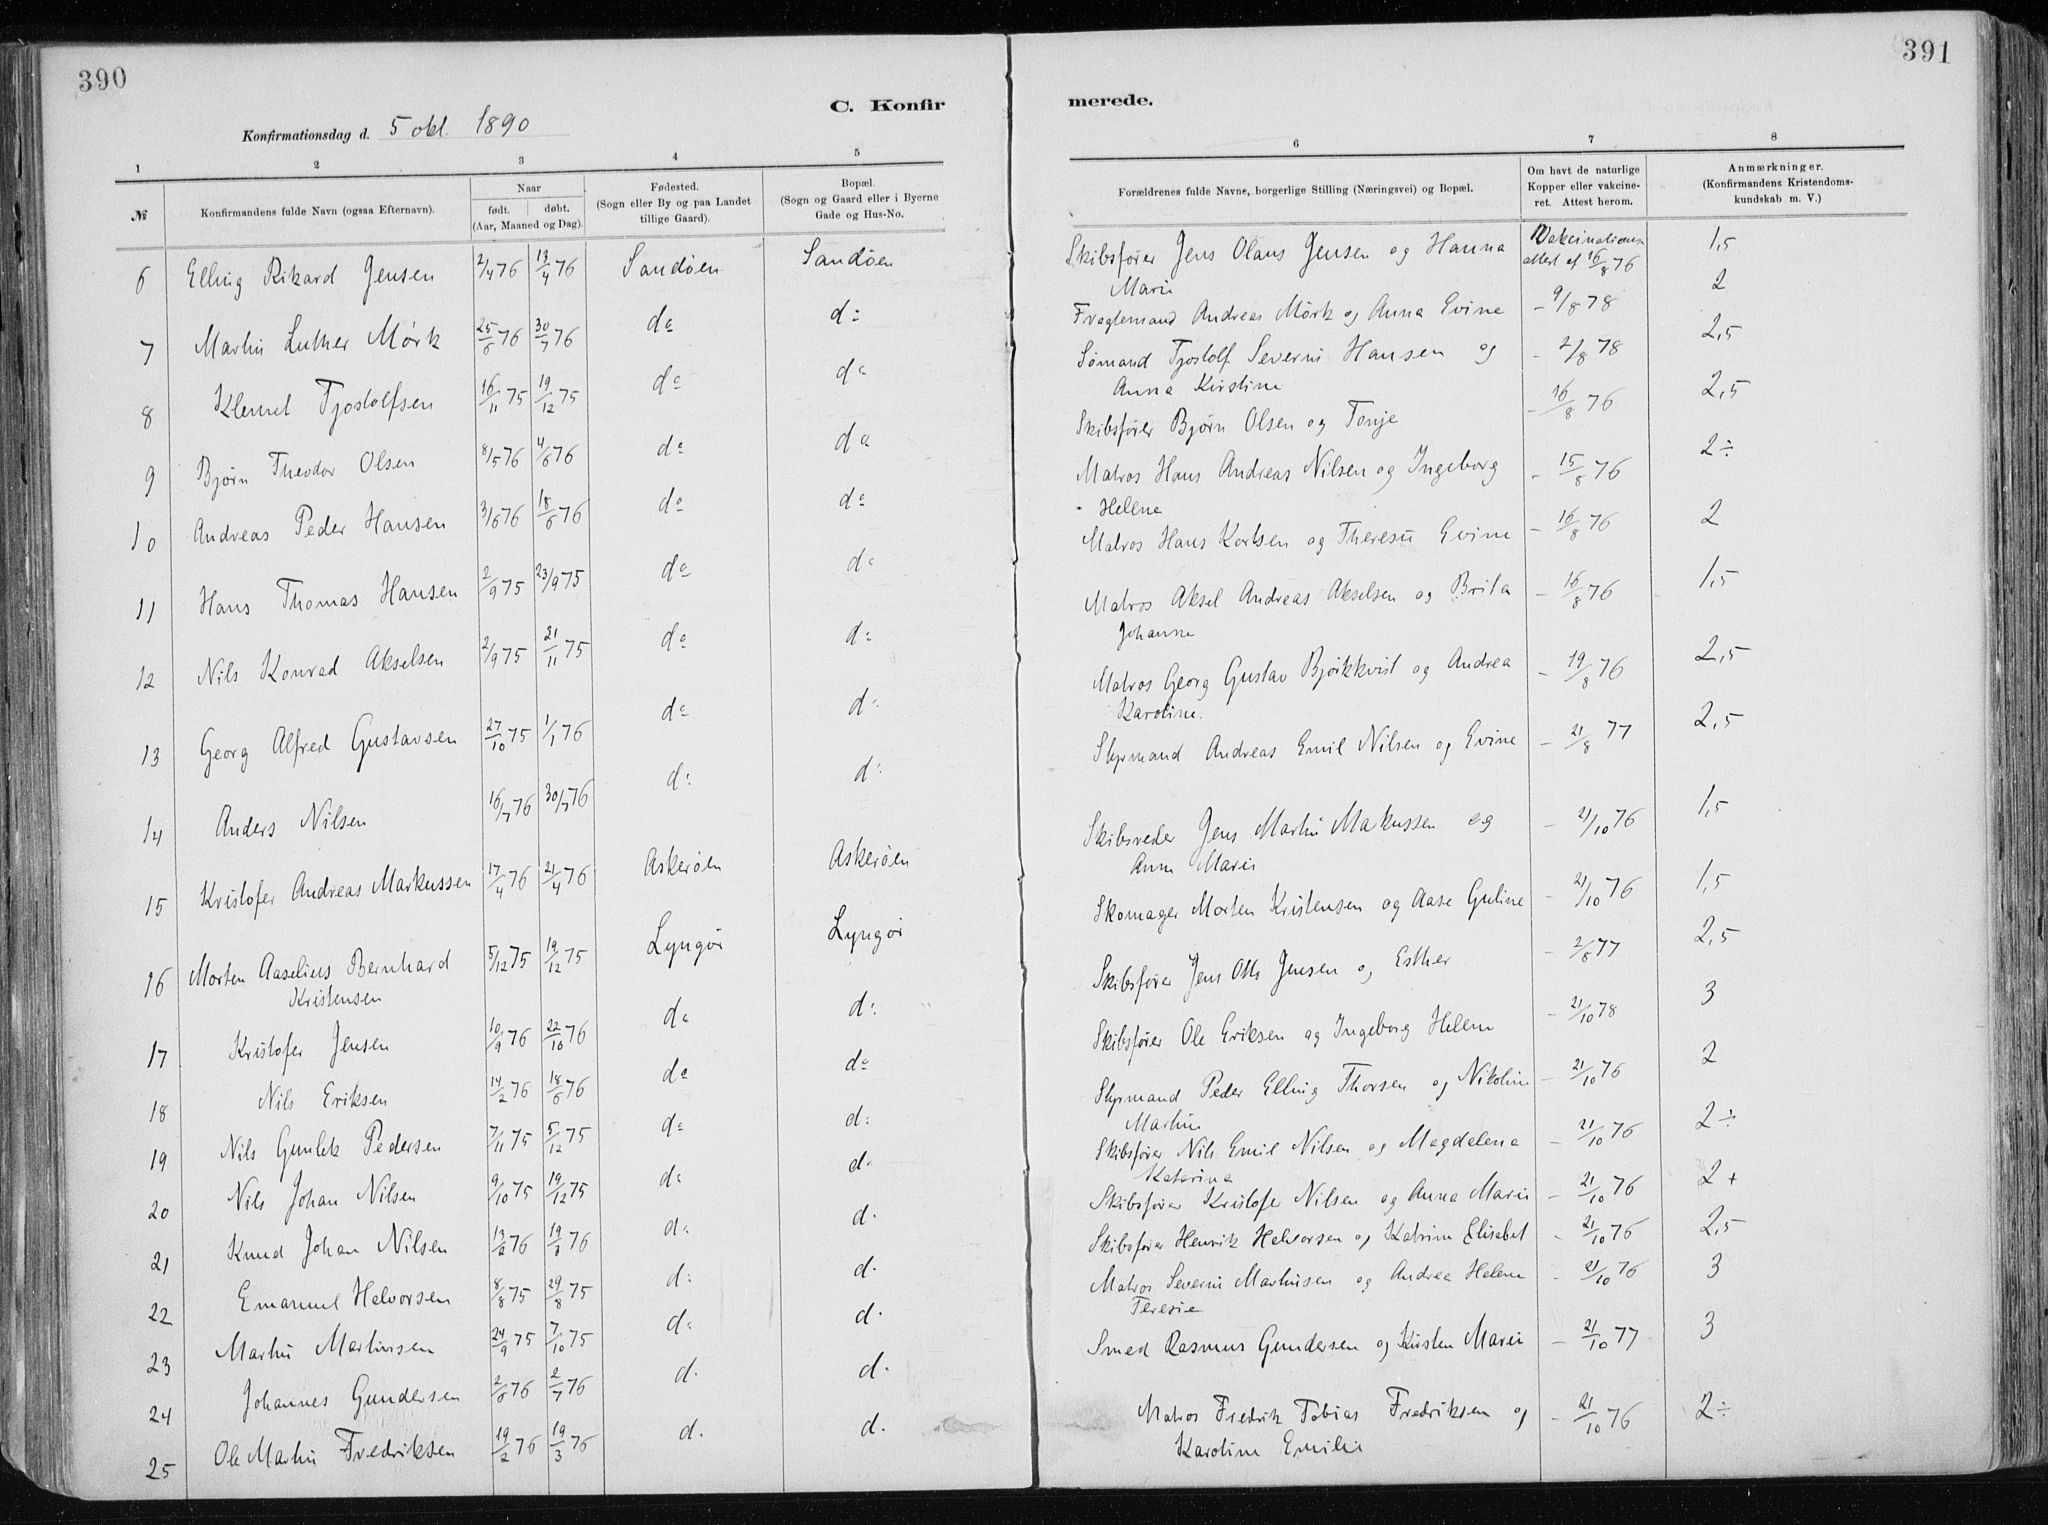 390
C. Konfir
Konfirmationsdag d. 5 okt. 1890
1 2 3 4 5
№ Konfirmandens fulde Navn (ogsaa Efternavn). Naar født. døbt. (Aar, Maaned og Dag). Fødested. (Sogn eller By og paa Landet tillige Gaard). Bopæl. (Sogn og Gaard eller i Byerne Gade og Hus-No.
6 Elling Rikard Jensen 2/4 76 13/4 76 Sandøen Sandøen
7 Martin Luther Mørk 25/6 76 30/7 76 do do
8 Klemet Tjostolfsen 16/11 75 19/12 75 do do
9 Bjørn Theodor Olsen 8/5 76 4/6 76 do do
10 Andreas Peder Hansen 3/6 76 18/6 76 do do
11 Hans Thomas Hansen 2/9 75 23/9 75 do do
12 Nils Konrad Akselsen 2/9 75 21/11 75 do do
13 Georg Alfred Gustavsen 27/10 75 1/1 76 do do
14 Anders Nilsen 16/7 76 30/7 76 do do
15 Kristofer Andreas Markussen 17/4 76 21/4 76 Askerøen Askerøen
16 Morten Aaselius Bernhard 5/12 75 19/12 75 Lyngør Lyngør
Kristensen
17 Kristofer Jensen 10/9 76 22/10 76 do do
18 Nils Eriksen 14/2 76 18/6 76 do do
19 Nils Gunlek Pedersen 7/11 75 5/12 75 do do
20 Nils Johan Nilsen 9/10 75 19/12 75 do do
21 Knud Johan Nilsen 13/2 76 19/3 76 do d.
22 Emanuel Halvorsen 8/8 75 29/8 75 do d.
23 Martin Martinsen 24/9 75 7/10 75 do d.
24 Johannes Gundersen 2/6 76 2/7 76 d. d.
25 Ole Martin Fredriksen 19/2 76 19/3 76 d. d.
391
merede.
6 7 8
Forældrenes fulde Navne, borgerlige Stilling (Næringsvei) og Bopæl. Om havt de naturlige Kopper eller vakcineret. Attest herom. Anmærkninger. (Konfirmandens Kristendomskundskab m. V.)
Skibsfører Jens Olaus Jensen og Hanna Vakcinations- 1,5
Marie attest af 16/8 76
Fragtemand Andreas Mørk og Anna Evine - 9/8 78 2
Sømand Tjostolf Severin Hansen og - 2/8 78 2,5
Anna Kirstine
Skibsfører Bjørn Olsen og Tonje - 16/8 76 2,5
Matros Hans Andreas Nilsen og Ingeborg - 15/8 76 2÷
Helene
Matros Hans Kortsen og Theresie Evine - 16/8 76 2
Matros Aksel Andreas Akselsen og Brita - 16/8 76 1,5
Johanne
Matros Georg Gustav Bjørkkvist og Andrea - 19/8 76 2,5
Karoline.
Styrmand Andreas Emil Nilsen og Evine - 21/8 77 2,5
Skibsreder Jens Martin Makussen og - 21/10 76 1,5
Anne Marie
Skomager Morten Kristensen og Aase Guline - 21/10 76 1,5
Skibsfører Jens Otto Jensen og Esther - 2/8 77 2,5
Skibsfører Ole Eriksen og Ingeborg Helene - 21/10 78 3
Styrmand Peder Elling Thorsen og Nikoline - 21/10 76 2
Martine
Skibsfører Nils Emil Nilsen og Magdalena - 21/10 76 2÷
Katarina
Skibsfører Kristofer Nilsen og Anna Marie - 21/10 76 2+
Skibsfører Henrik Halvorsen og Katrine Elisabet - 21/10 76 2,5
Matros Severin Martinsen og Andrea Helene - 21/10 76 3
Teresie
Smed Rasmus Gundersen og Kirsten Marie - 21/10 77 3
Matros Fredrik Tobias Fredriksen og - 21/10 76 2÷
Karoline Emilie